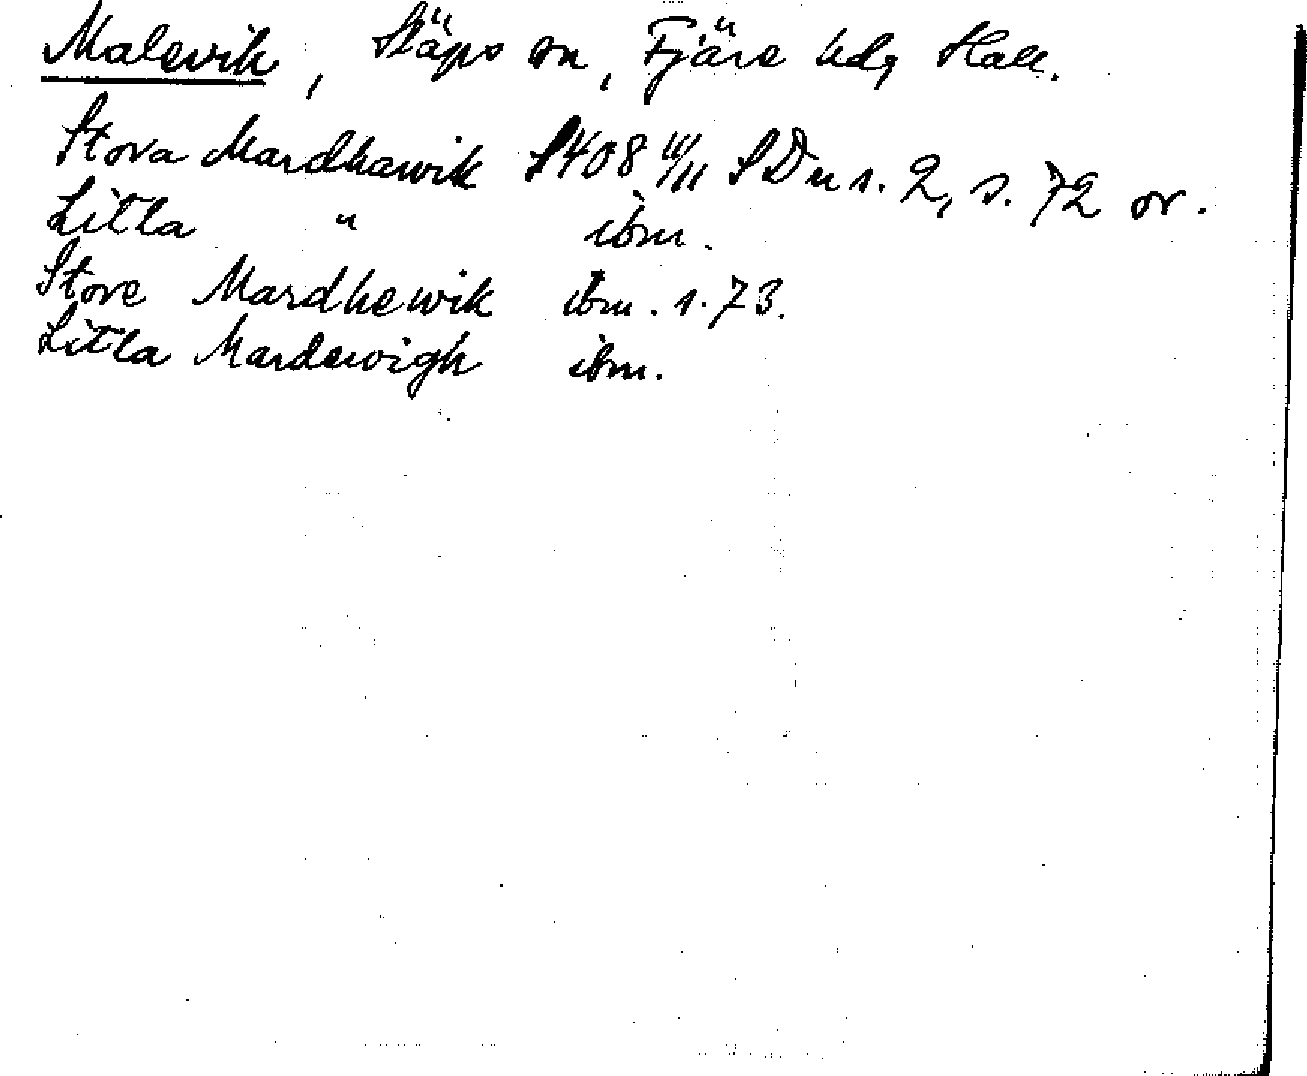 Malevik, Släps sn, Fjäre hd, Hall.
Stora Mardhawik 1408 10/11 SD n s. 2, s. 72 or.
Litla " ibm.
Store Mardhewik ibm. s. 73.
Litla Mardewigh ibm.